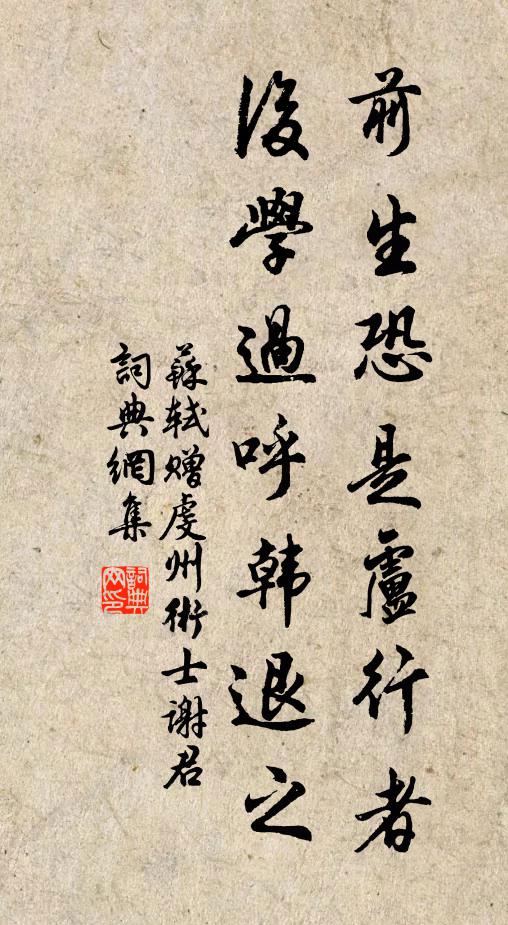 前生恐是盧行者
後學過呼韩退之
蘇軾贈虔州術士謝君
詞典網集
詞典
网印